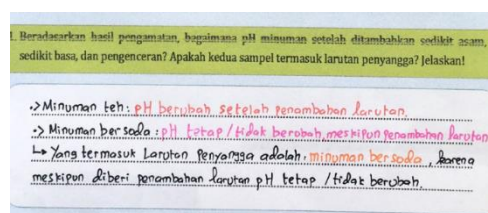 1. Beradasarkan hasil pengamatan, bagaimana pH minuman setelah ditambahkan sedikit asam,
sedikit basa, dan pengenceran? Apakah kedua sampel termasuk larutan penyangga? Jelaskan!
.> Minuman teh: pH berubah setelah penambahan larutan.
.> Minuman bersoda : pH tetap / tidak berubah, meskipun penambahan larutan
↳ Yang termasuk Larutan Penyangga adalah: minuman bersoda, karena
meskipun diberi penambahan larutan pH tetap / tidak berubah.